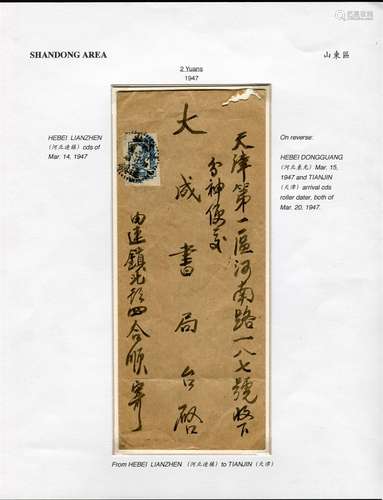 SHANDONG AREA
山東區
2 Yuans
1947
HEBEI LIANZHEN
(河北连镇) cds of
Mar. 14, 1947
On reverse:
HEBEI DONGGUANG
(河北東光) Mar. 15,
1947 and TIANJIN
(天津) arrival cds
roller dater, both of
Mar. 20, 1947.
天津第一區河南路一八七號收下
分神便交
大成書局台啓
由連鎮北街四合順寄
From HEBEI LIANZHEN (河北连镇) to TIANJIN (天津)